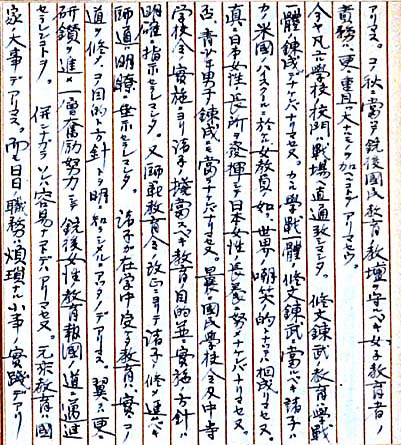 アリマス。コノ秋ニ當リ銃後國民教育ノ教壇ヲ守ルベキ女子教育者ノ
責務ハ更ニ重且大ナルモノヲ加ヘタコトデアリマセウ。
今ヤ凡ユル學校ノ校門ハ戰場ヘ直通致シマシタ。修文錬武ノ教育ハ學戰
一體ノ錬成デナケレバナリマセヌ。カヽル學戰一體、修文錬武ニ當ルベキ諸子
カノ米國ノ ニ於ケル女教員ノ如ク世界ノ嘲笑ノ的トナツテハ相成リマセヌ。
眞ノ日本女性ノ長所ヲ發揮シテ日本女性ノ長養ニ努メナケレバナリマセヌ。
否、青少年男子ノ錬成ニモ當ラナケレバナリマセヌ。曩ニ國民學校令及中等
學校令ノ實施ニヨリ諸子ノ擔當スベキ教育ノ目的並ニ實施ノ方針ハ
明確ニ指示セラレマシタ。又師範教育令ノ改正ニヨリテ諸子ノ修メ進ムベキ
師道ハ明瞭ニ垂示セラレマシタ。諸子ガ在學中受ケタ教育ハ實ニコノ
道ヲ修メルヲ目的トシ方針トシタ 明 知 デアリマス。翼クハ更ニ
研鑽ヲ進メ一層奮勵努力シテ銃後女性教育報國ノ道ニ邁進
セラレンコトヲ。併シナガラソレハ容易ナコトデハアリマセヌ。元 教育ハ國
家ノ大事デアリマス。而モ日日ノ職務ハ煩瑣ナル小事ノ實踐デアリ